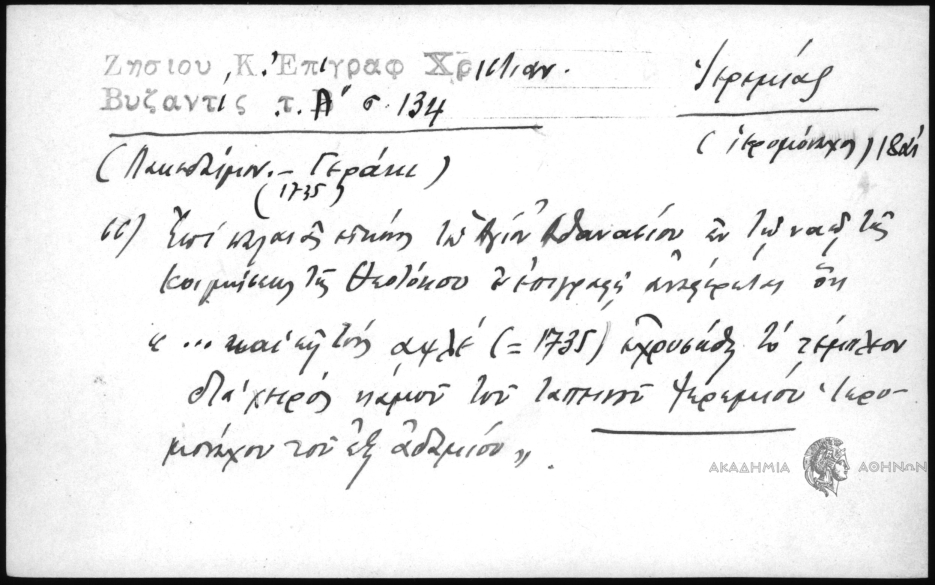 Ζησίου Κ. Ἐπιγραφ Χριστιαν.
Βυζαντις τ. Α' σ. 134
Ἱερεμίας
(ἱερομόναχος) 18 αἰ
(Λακεδαίμον. – Γεράκι)
(1735)
66) Ἐπὶ παλαιᾶς εἰκόνος τοῦ Ἁγίου Ἀθανασίου ἐν τῷ ναῷ τῆς
Κοιμήσεως τῆς Θεοτόκου ἐν ἐπιγραφῇ ἀναφέρεται ὅτι
« ... καὶ εἰς τοὺς αψλέ (= 1735) ἐχρυσώθη τὸ τέμπλεον
διὰ χειρός κἀμοῦ τοῦ ταπεινοῦ Ἱερεμίου ἱερο-
μονάχου τοῦ ἐξ ἀδαμίου».
ΑΚΑΔΗΜΙΑ ΑΘΗΝΩΝ